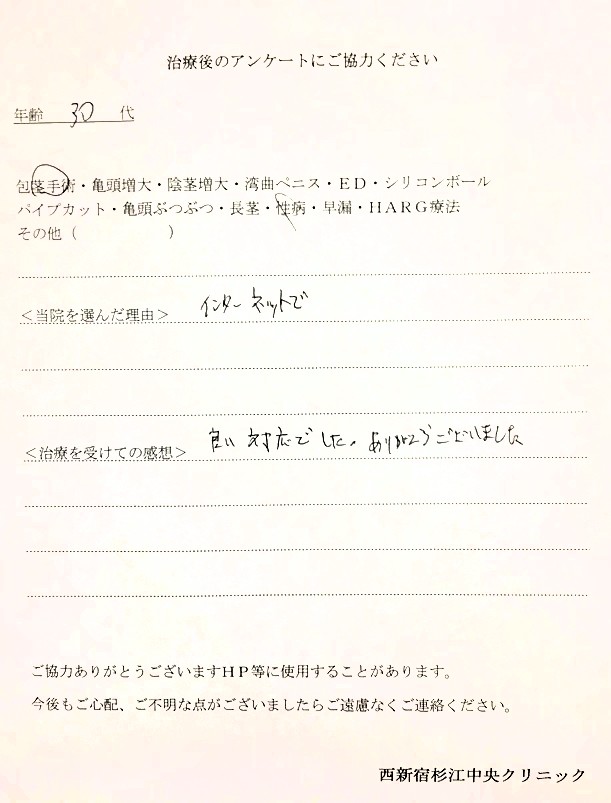 治療後のアンケートにご協力ください
年齢 30 代
包茎手術・亀頭増大・陰茎増大・湾曲ペニス・ED・シリコンボール
パイプカット・亀頭ぶつぶつ・長茎・性病・早漏・HARG療法
その他( )
<当院を選んだ理由> インターネットで
<治療を受けての感想> 良い対応でした。ありがとうございました
ご協力ありがとうございますHP等に使用することがあります。
今後もご心配、ご不明な点がございましたらご遠慮なくご連絡ください。
西新宿杉江中央クリニック